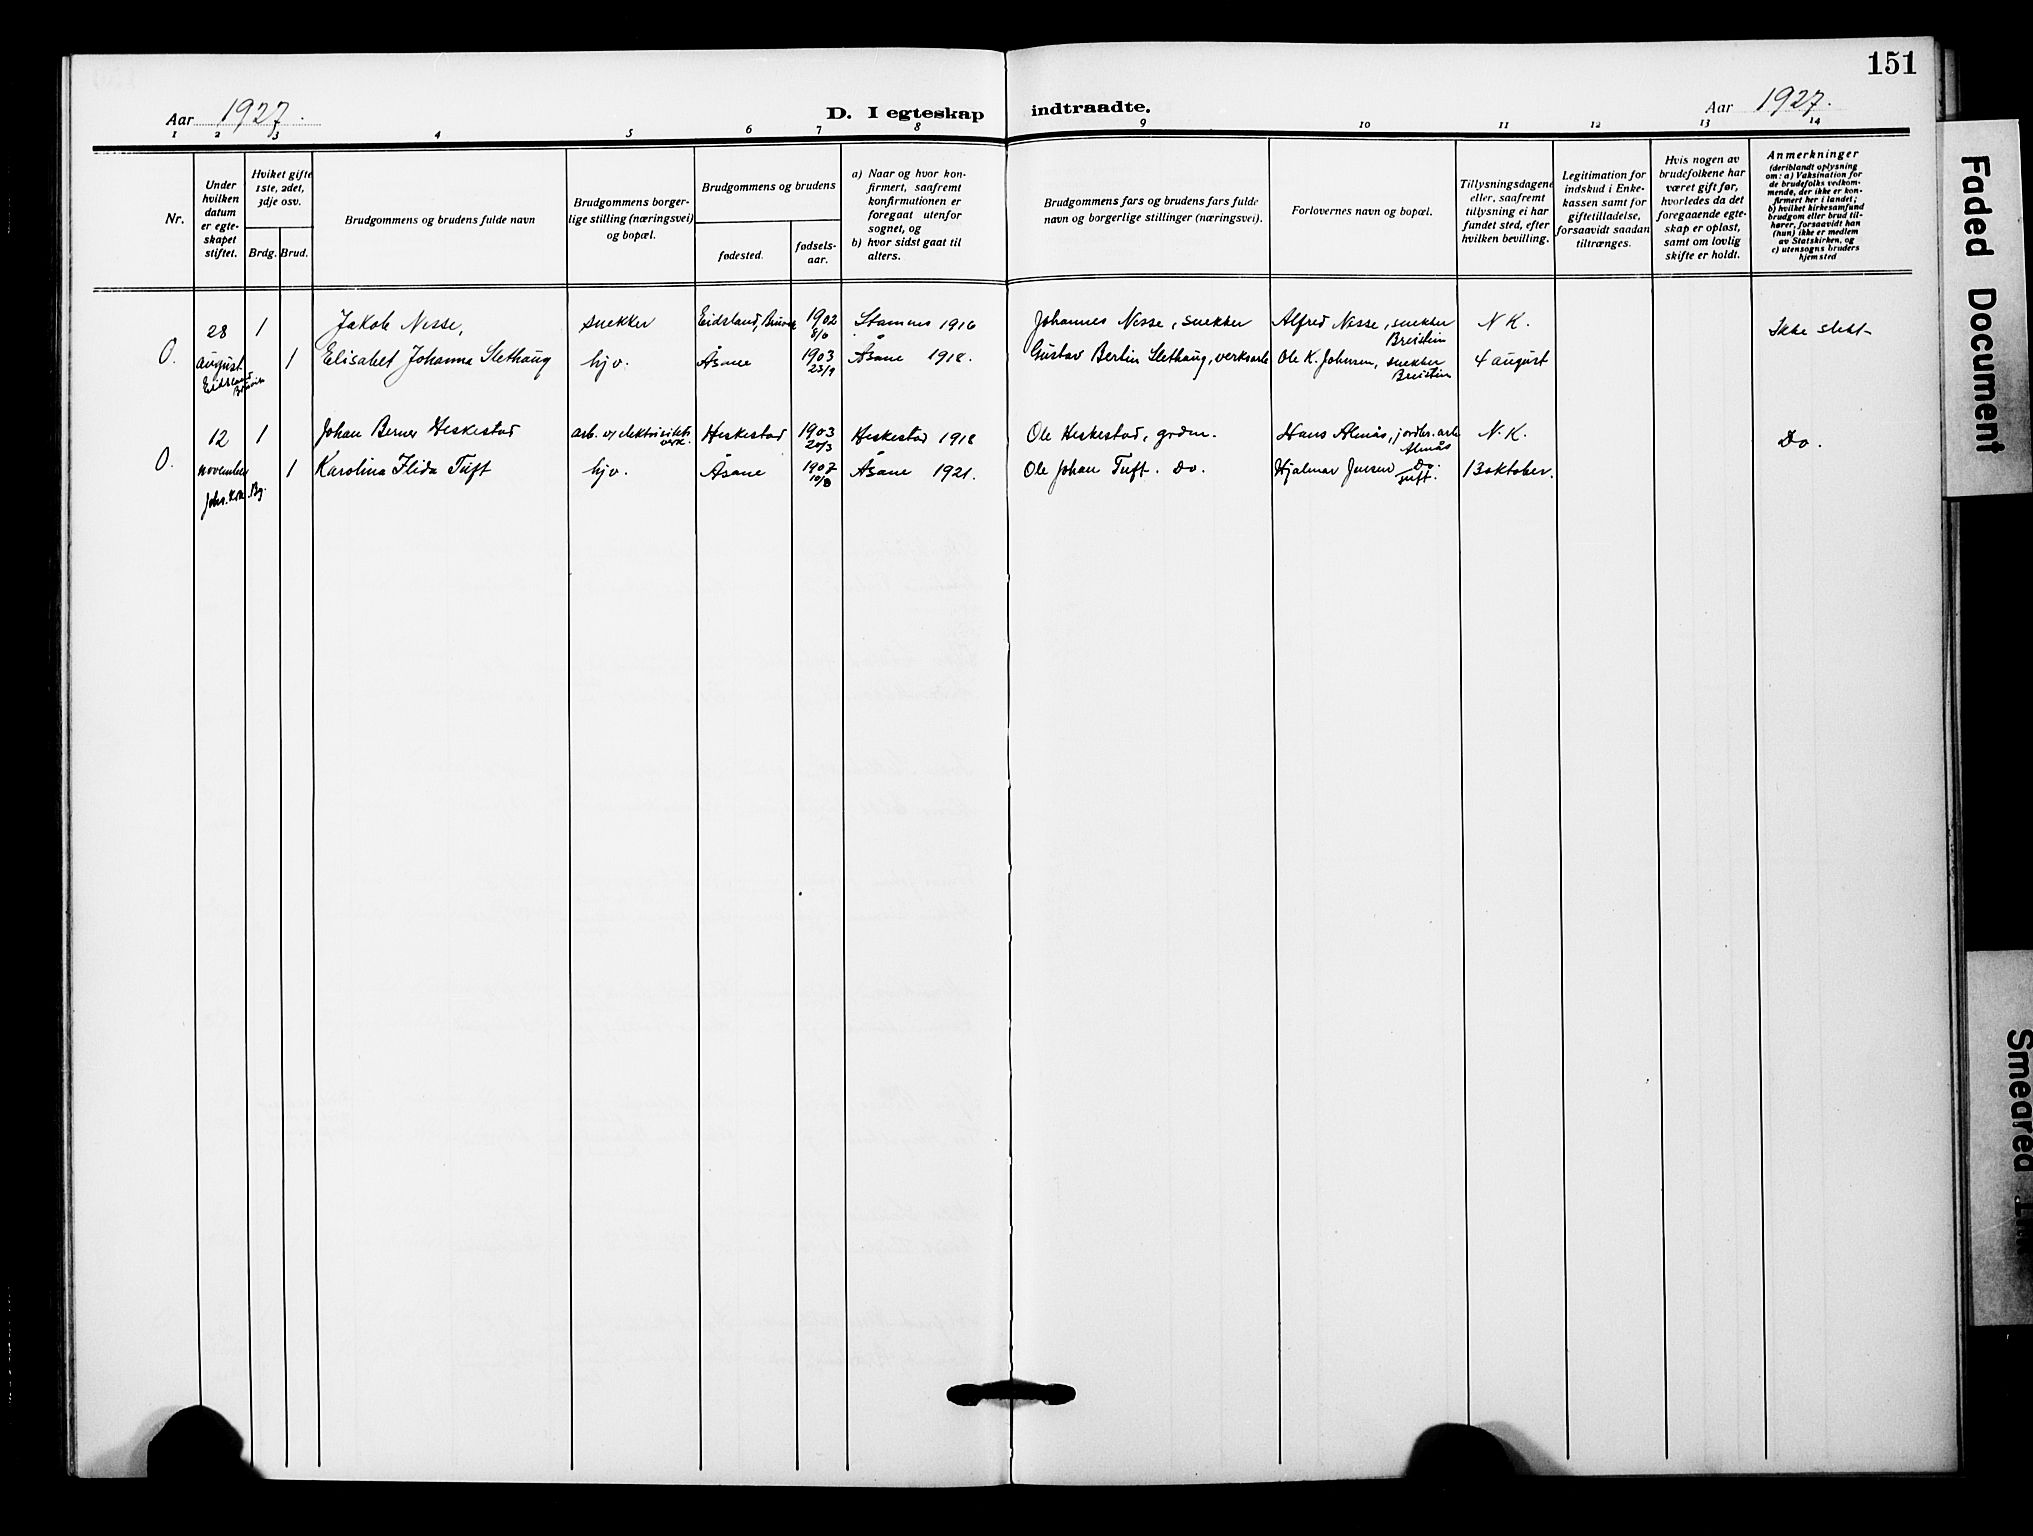 151
Aar 1927.
D. I egteskap indtraadte.
Aar 1927.
1 2 3 4 5 6 7 8 9 10 11 12 13 14
Nr.
Under
hvilken
datum
er egte-
skapet
stiftet.
Hviket gifte
1ste, 2det,
3dje osv.
Brdg. Brud.
Brudgommens og brudens fulde navn
Brudgommens borger-
lige stilling (næringsvei)
og bopæl.
Brudgommens og brudens
fødested.
fødsels-
aar.
a) Naar og hvor kon-
firmert, saafremt
konfirmationen er
foregaat utenfor
sognet, og
b) hvor sidst gaat til
alters.
Brudgommens fars og brudens fars fulde
navn og borgerlige stillinger (næringsvei).
Forlovernes navn og bopæl.
Tillysningsdagene
eller, saafremt
tillysning ei har
fundet sted, efter
hvilken bevilling.
Legitimation for
indskud i Enke-
kassen samt for
giftetilladelse,
forsaavidt saadan
tiltrænges.
Hvis nogen av
brudefolkene har
været gift før,
hvorledes da det
foregaaende egte-
skap er opløst,
samt om lovlig
skifte er holdt.
Anmerkninger
(deriblandt oplysning
om: a) Vaksination for
de brudefolks vedkom-
mende, der ikke er kon-
firmert her i landet;
b) hvilket kirkesamfund
brudgom eller brud til-
hører, forsaavidt han
(hun) ikke er medlem
av Statskirken, og
c) utensogns bruders
hjemsted
28 1 Jakob Nesse, snekker Eidsland, Bruvik 1902 Stamnes 1916 Johannes Nesse, snekker Alfred Nesse, snekker N K. Ikke slekt
8/6 Breistein
O. august 1 Elisabet Johanna Slethaug hjv. Åsane 1903 Åsane 1918. Gustav Bertin Slethaug, verksarb Ole K. Johnsen, snekker 4 august
Eidsland 23/9 Breistein
Bruvik
12 1 Johan Berner Heskestad arb. v/ elektricitets Heskestad 1903 Heskestad 1918 Ole Heskestad, grdm. Hans Almås, jordbr. arb N. K. Do.
verk. 20/3 Almås
O. november 1 Karolina Flida Tuft hjv. Åsane 1907 Åsane 1921. Ole Johan Tuft. Do. Hjalmar Jensen Do. 13 oktober.
Johs. Kirk. Bg. 10/8 Tuft.
Faded Document
Smeared